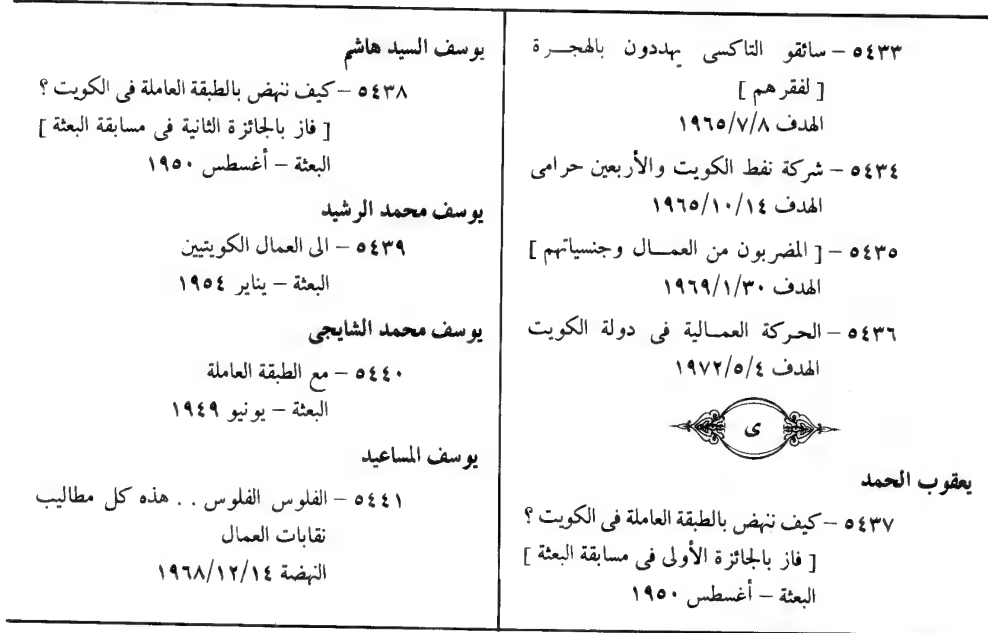 ٥٤٣٣ – سائقو التاكسى يهددون بالهجــرة
[ لفقرهم ]
الهدف ١٩٦٥/٧/٨
٥٤٣٤ – شركة نفط الكويت والأربعين حرامى
الهدف ١٩٦٥/١٠/١٤
٥٤٣٥ – [ المضربون من العمــال وجنسياتهم ]
الهدف ١٩٦٩/١/٣٠
٥٤٣٦ – الحركة العمــالية فى دولة الكويت
الهدف ١٩٧٢/٥/٤
ى
يعقوب الحمد
٥٤٣٧ – كيف ننهض بالطبقة العاملة فى الكويت ؟
[ فاز بالجائزة الأولى فى مسابقة البعثة ]
البعثة – أغسطس ١٩٥٠
يوسف السيد هاشم
٥٤٣٨ – كيف ننهض بالطبقة العاملة فى الكويت ؟
[ فاز بالجائزة الثانية فى مسابقة البعثة ]
البعثة – أغسطس ١٩٥٠
يوسف محمد الرشيد
٥٤٣٩ – الى العمال الكويتيين
البعثة – يناير ١٩٥٤
يوسف محمد الشايجى
٥٤٤٠ – مع الطبقة العاملة
البعثة – يونيو ١٩٤٩
يوسف المساعيد
٥٤٤١ – الفلوس الفلوس . . هذه كل مطاليب
نقابات العمال
النهضة ١٩٦٨/١٢/١٤